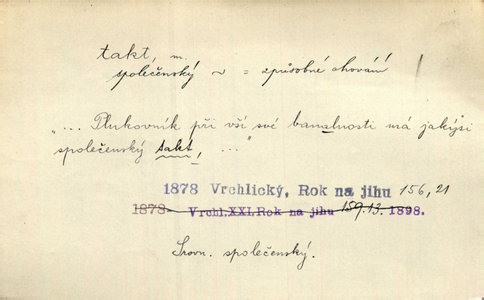 takt, m.
společenský ~ = způsobné chování
"... Plukovník při vší své banalnosti má jakýsi
společenský takt, ..."
1878 Vrchlický, Rok na jihu 156, 21
1878 Vrchl. XXI. Rok na jihu 159.13. 1898.
Srovn. společenský.